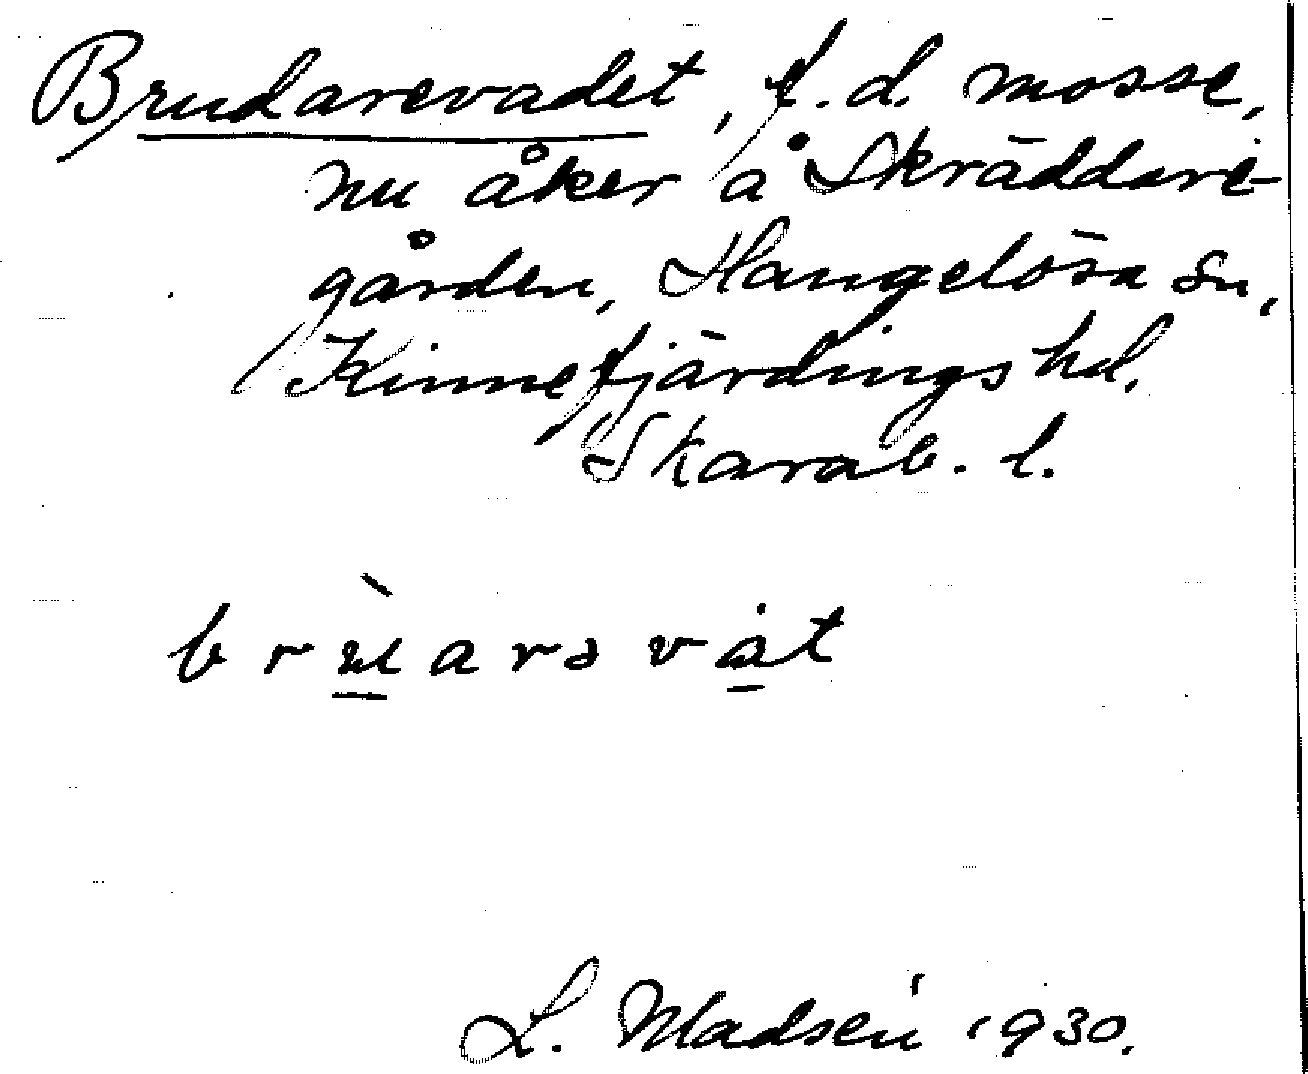 Brudarevadet, f.d. mosse,
nu åker å Skräddare-
gården, Hangelösa sn,
Kinnefjärdings hd.
Skarab. l.
brùarə vȧt
L. Madsén 1930.